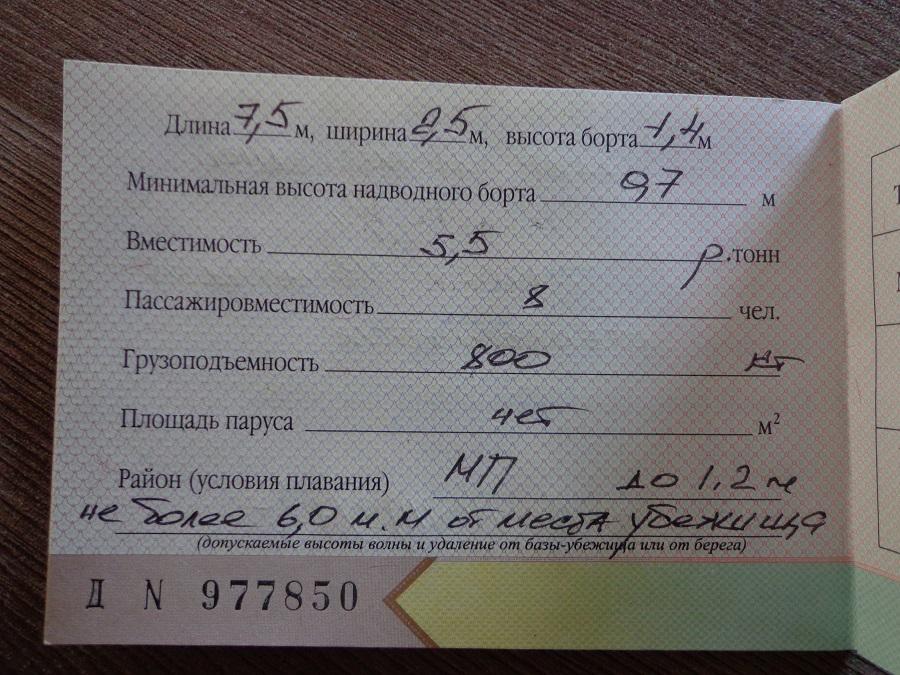 Длина 7,5 м, ширина 2,5 м, высота борта 1,4 м
Минимальная высота надводного борта 0,7 м
Вместимость 5,5 р.тонн
Пассажировместимость 8 чел.
Грузоподъемность 800 кг
Площадь паруса нет м²
Район (условия плавания) МП до 1,2 м
не более 6,0 м.м от места убежища
(допускаемые высоты волны и удаление от базы-убежища или от берега)
Д N 977850